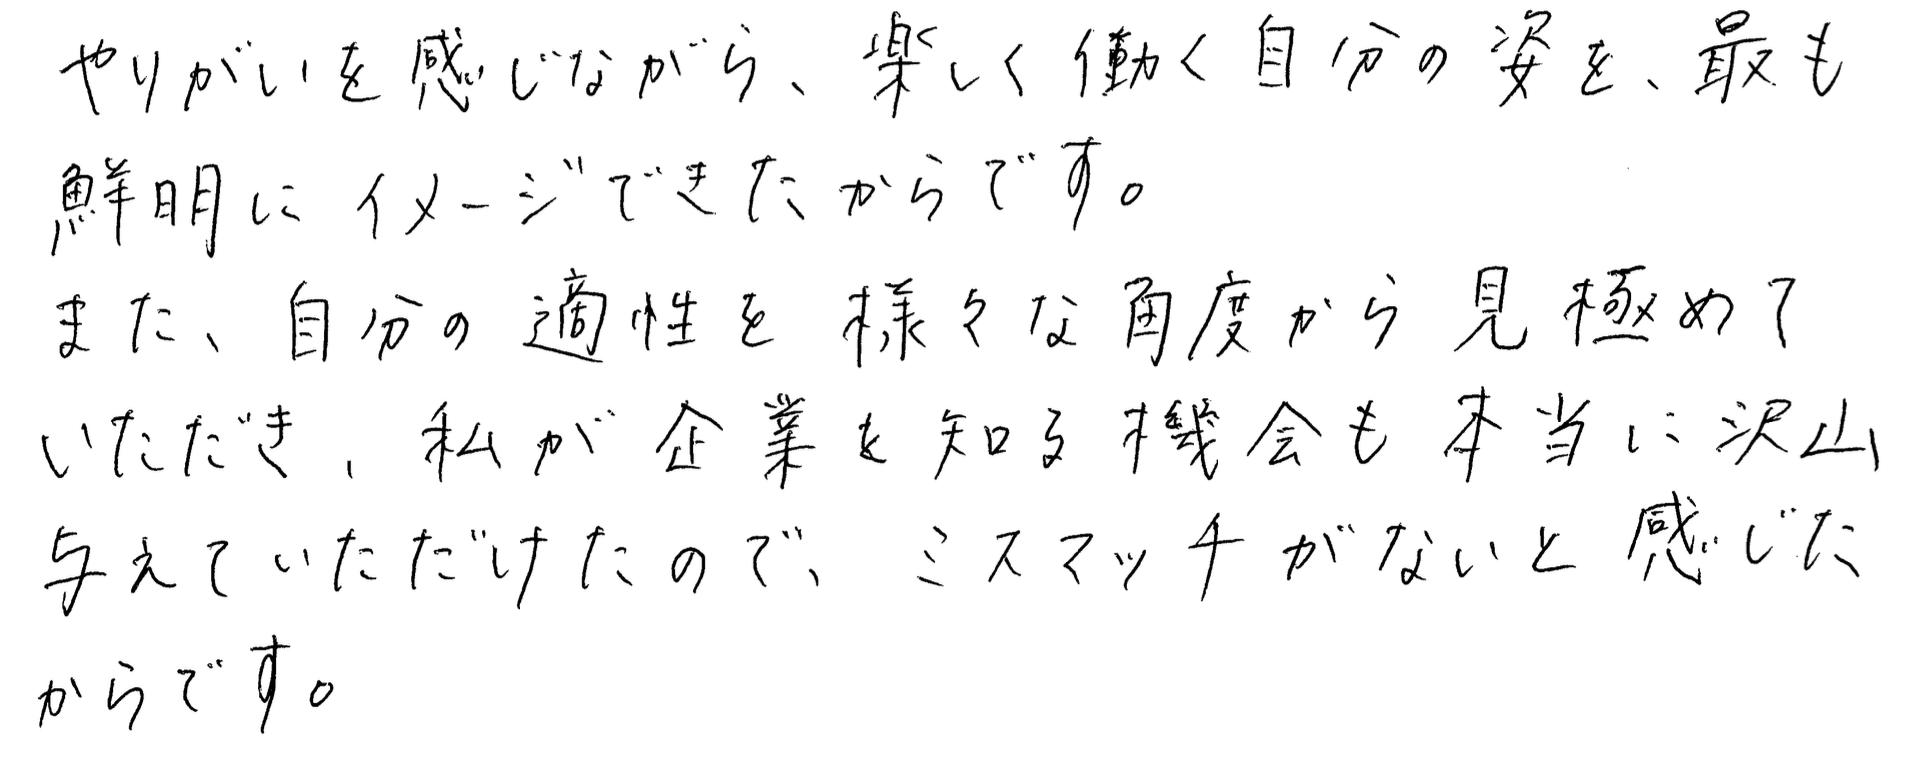 やりがいを感じながら、楽しく働く自分の姿を、最も
鮮明にイメージできたからです。
また、自分の適性を様々な角度から見極めて
いただき、私が企業を知る機会も本当に沢山
与えていただけたので、ミスマッチがないと感じた
からです。